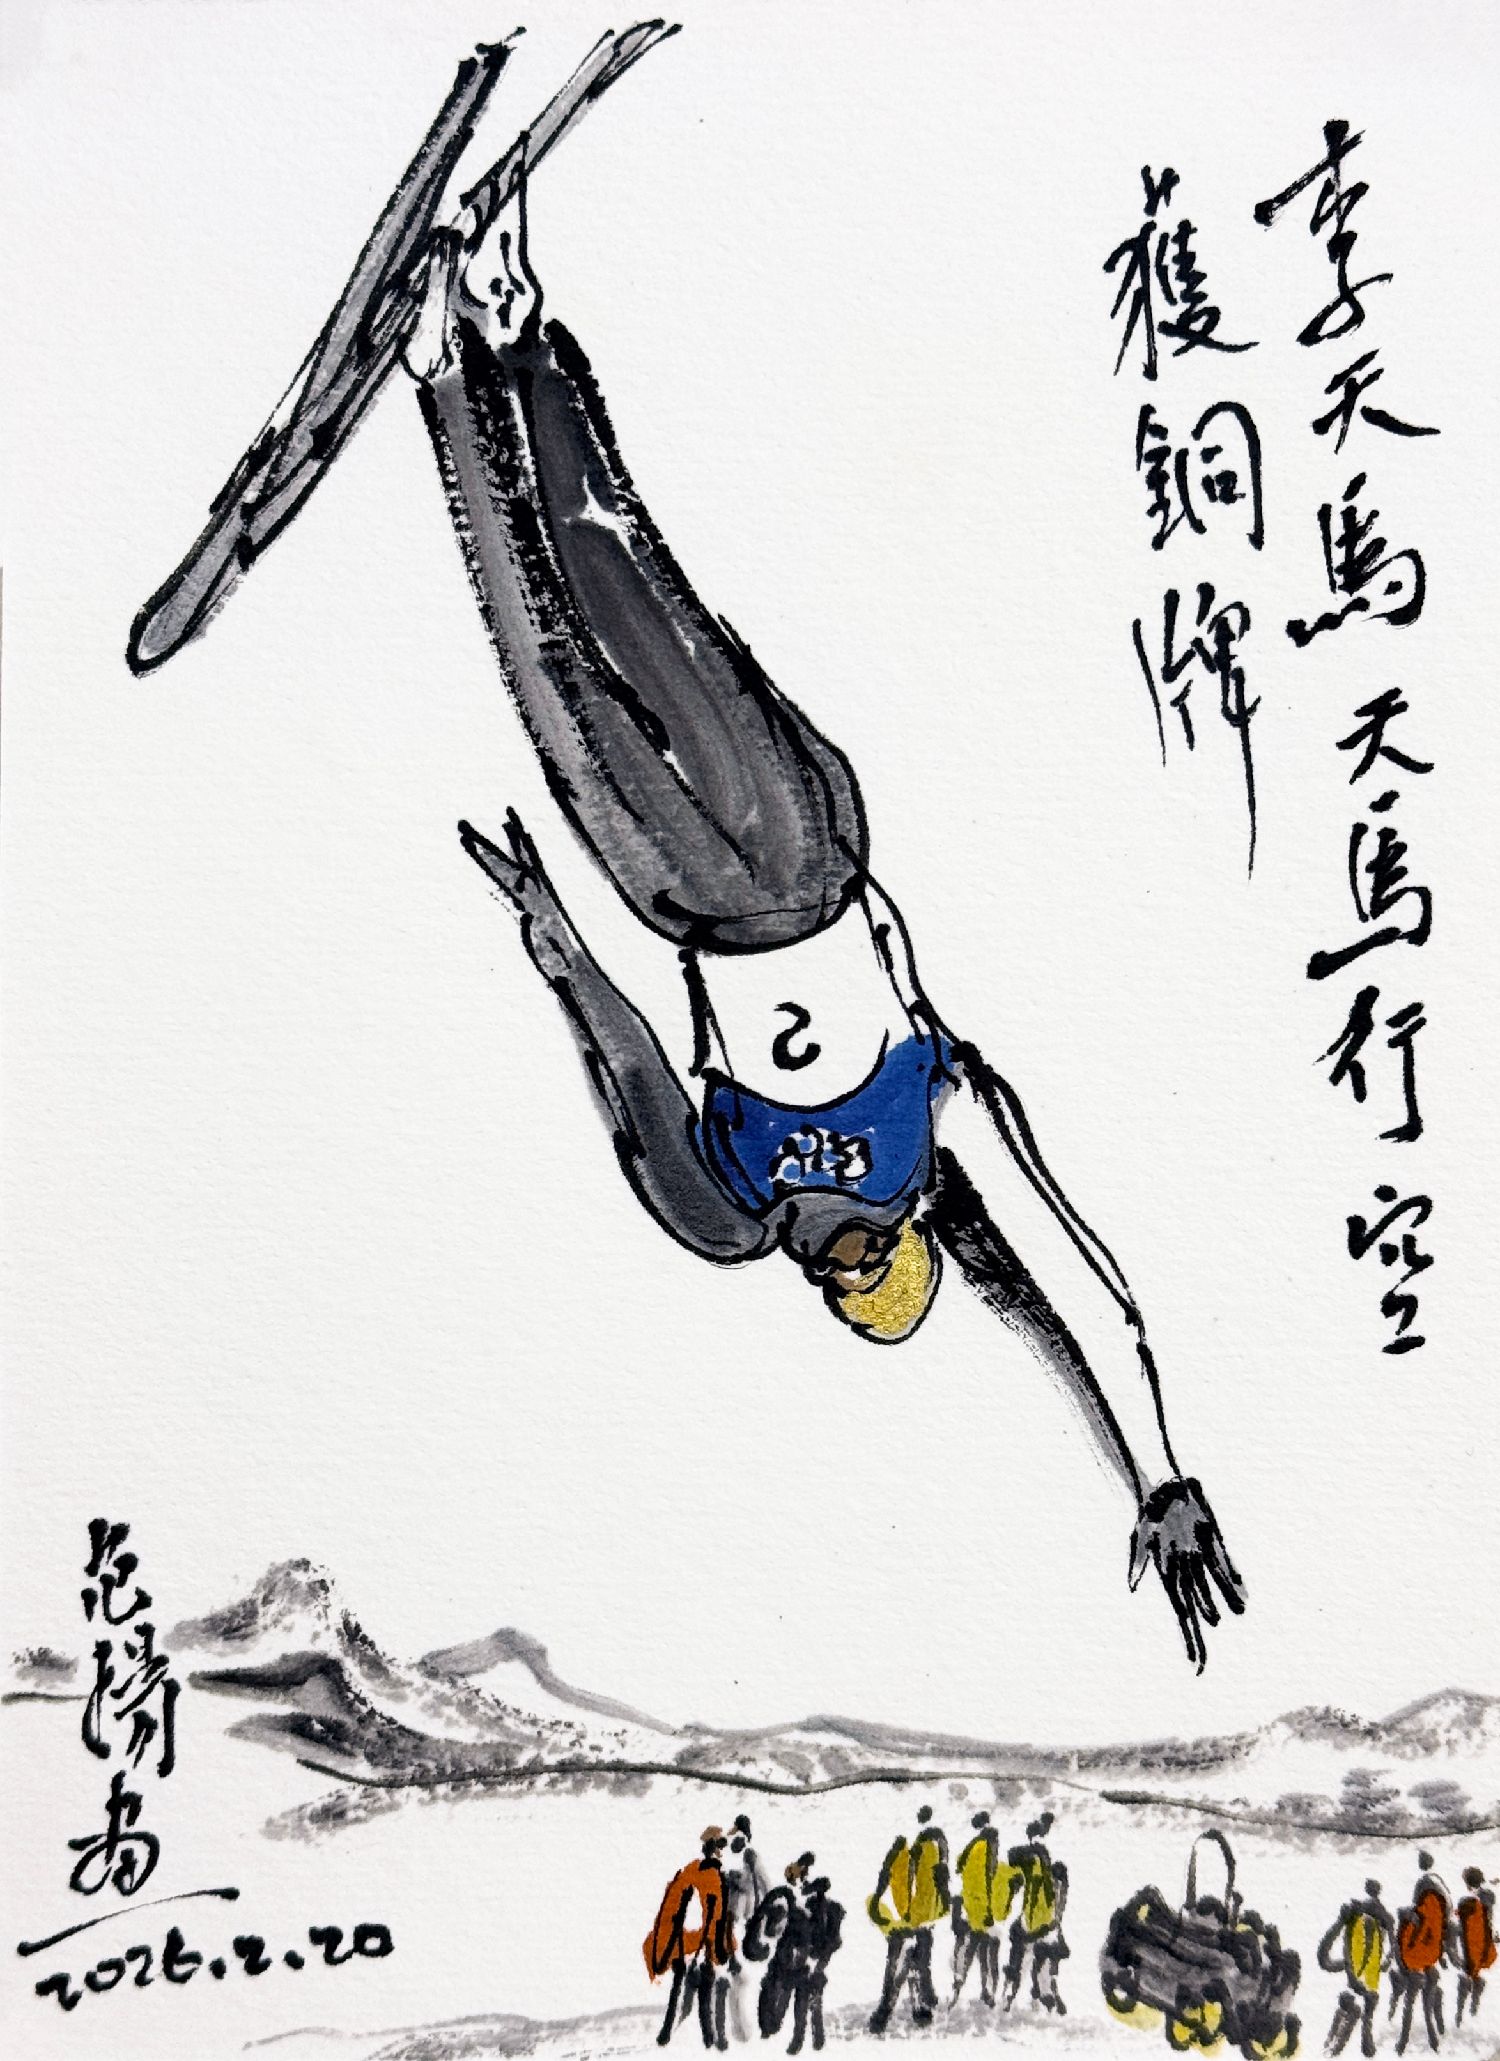 李天馬天馬行空
獲銅牌
2
范揚画
2026.2.20